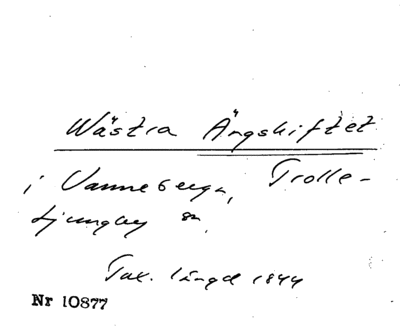 Wästra Ängskiftet
i Vanneberga, Trolle-
Ljungby sn.
Tax. längd 1844
Nr 10877